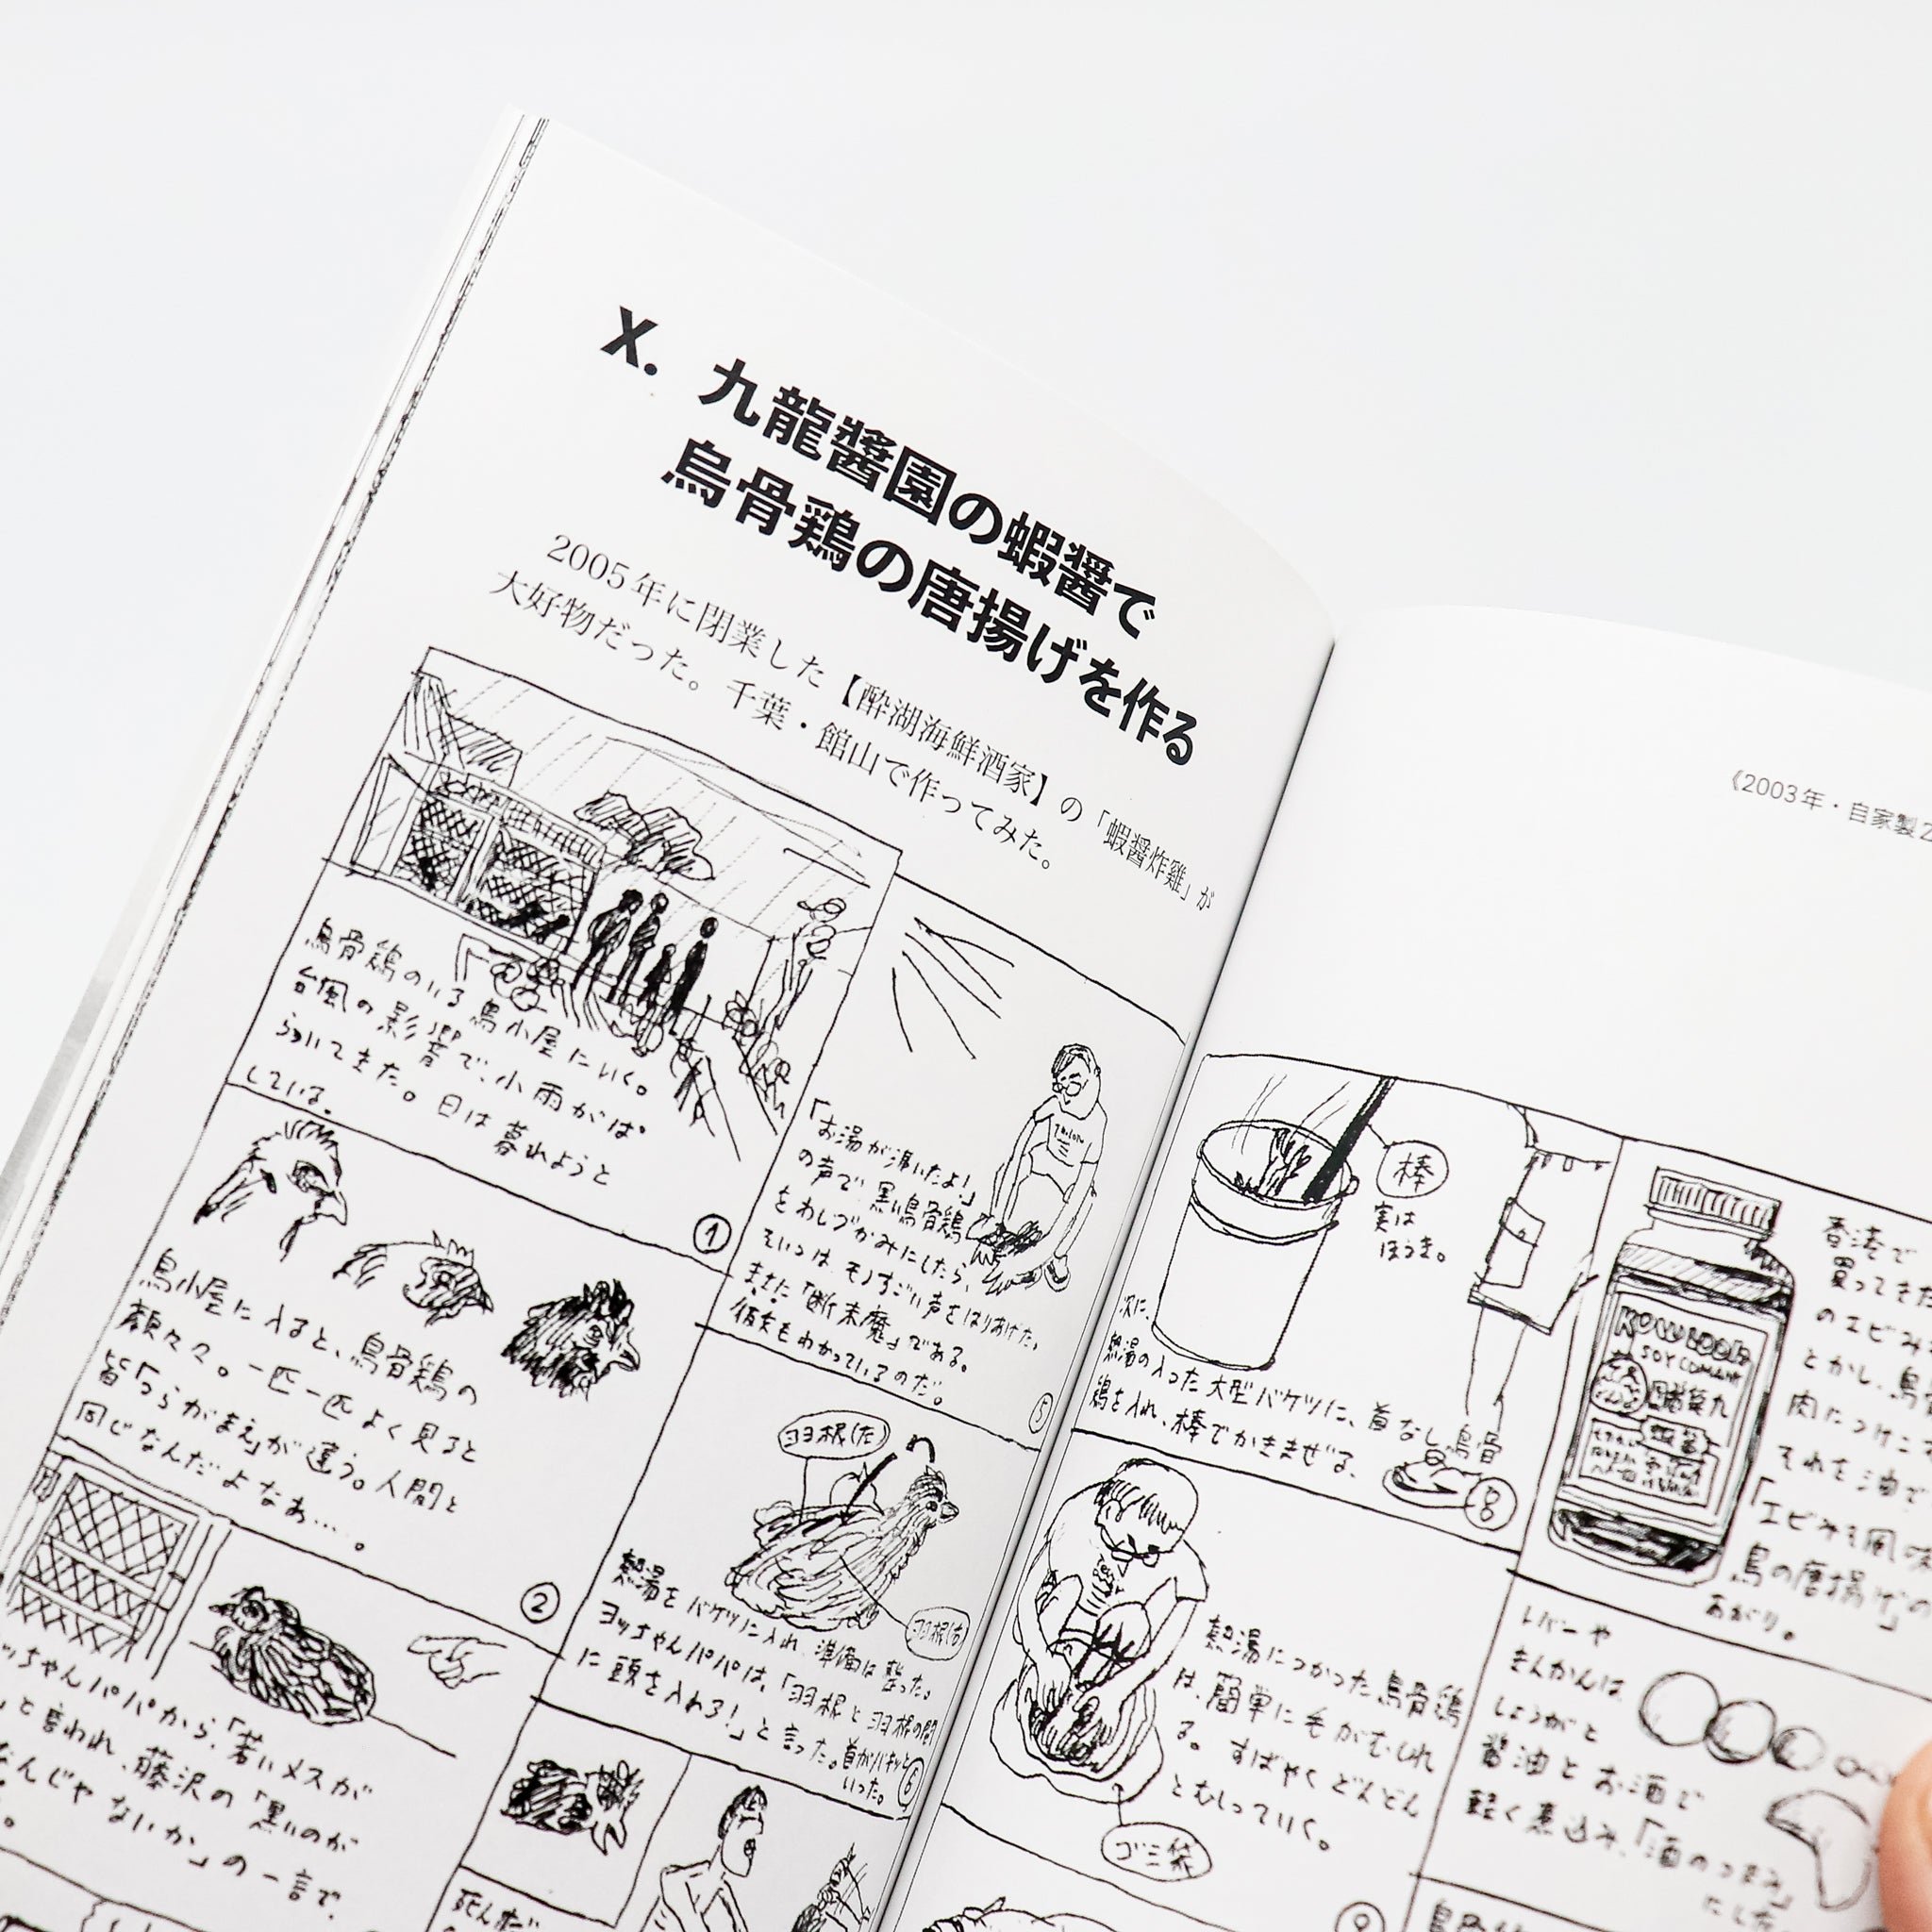 X. 九龍醬園の蝦醤で
烏骨鶏の唐揚げを作る
2005年に閉業した【酔湖海鮮酒家】の「蝦醤炸雞」が
大好物だった。千葉・館山で作ってみた。
烏骨鶏のいる鳥小屋にいく。
台風の影響で、小雨がぱ
らついてきた。日は暮れようと
している。
①
鳥小屋に入ると、烏骨鶏の
顔々々。一匹一匹よく見ると
皆「つらがまえ」が違う。人間と
同じなんだよなあ…。
②
ッちゃんパパから、「若いメスが
」と言われ、藤沢の「黒いのが
なんじゃないか」の一言で、
「お湯が沸いたよ!」
の声で、黒い烏骨鶏
をわしづかみにしたら、
そいつは、モノすごい声をはりあげた。
まさに「断末魔」である。
彼女もわかっているのだ。
⑤
羽根(左)
羽根(右)
熱湯をバケツに入れ、準備は整った。
ヨッちゃんパパは、「羽根と羽根の間
に頭を入れろ!」と言った。
首がバキッと
いった。
⑥
死んだ
《2003年・自家製
棒
実は
ほうき。
次に、
熱湯の入った大型バケツに、首なし烏骨
鶏を入れ、棒でかきまぜる。
⑧
熱湯につかった烏骨鶏
は、簡単に毛がむしれ
る。すばやくどんどん
とむしっていく。
ゴミ袋
⑨
香港で
買ってきた
のエビみ
とかし、鳥
肉につけこ
それを油で
「エビみそ風味
鳥の唐揚げ」の
あがり。
KOWLOON
SOY COMPANY
レバーや
きんかんは
しょうがと
醤油とお酒で
軽く煮込み、「酒のつまみ」
にした
烏骨